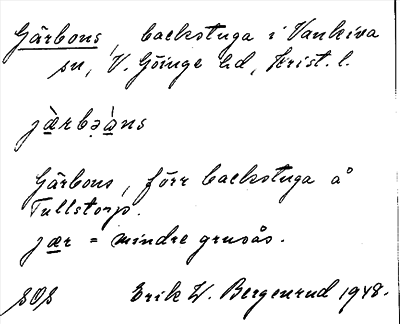 Gärbons, backstuga i Vankiva
sn, V. Göinge hd, Krist. l.
jæ̀rbə̣à̱ns
Gärbons, förr backstuga å
Tullstorp.
jær = mindre grusås.
SOS Erik W. Bergenrud 1948.